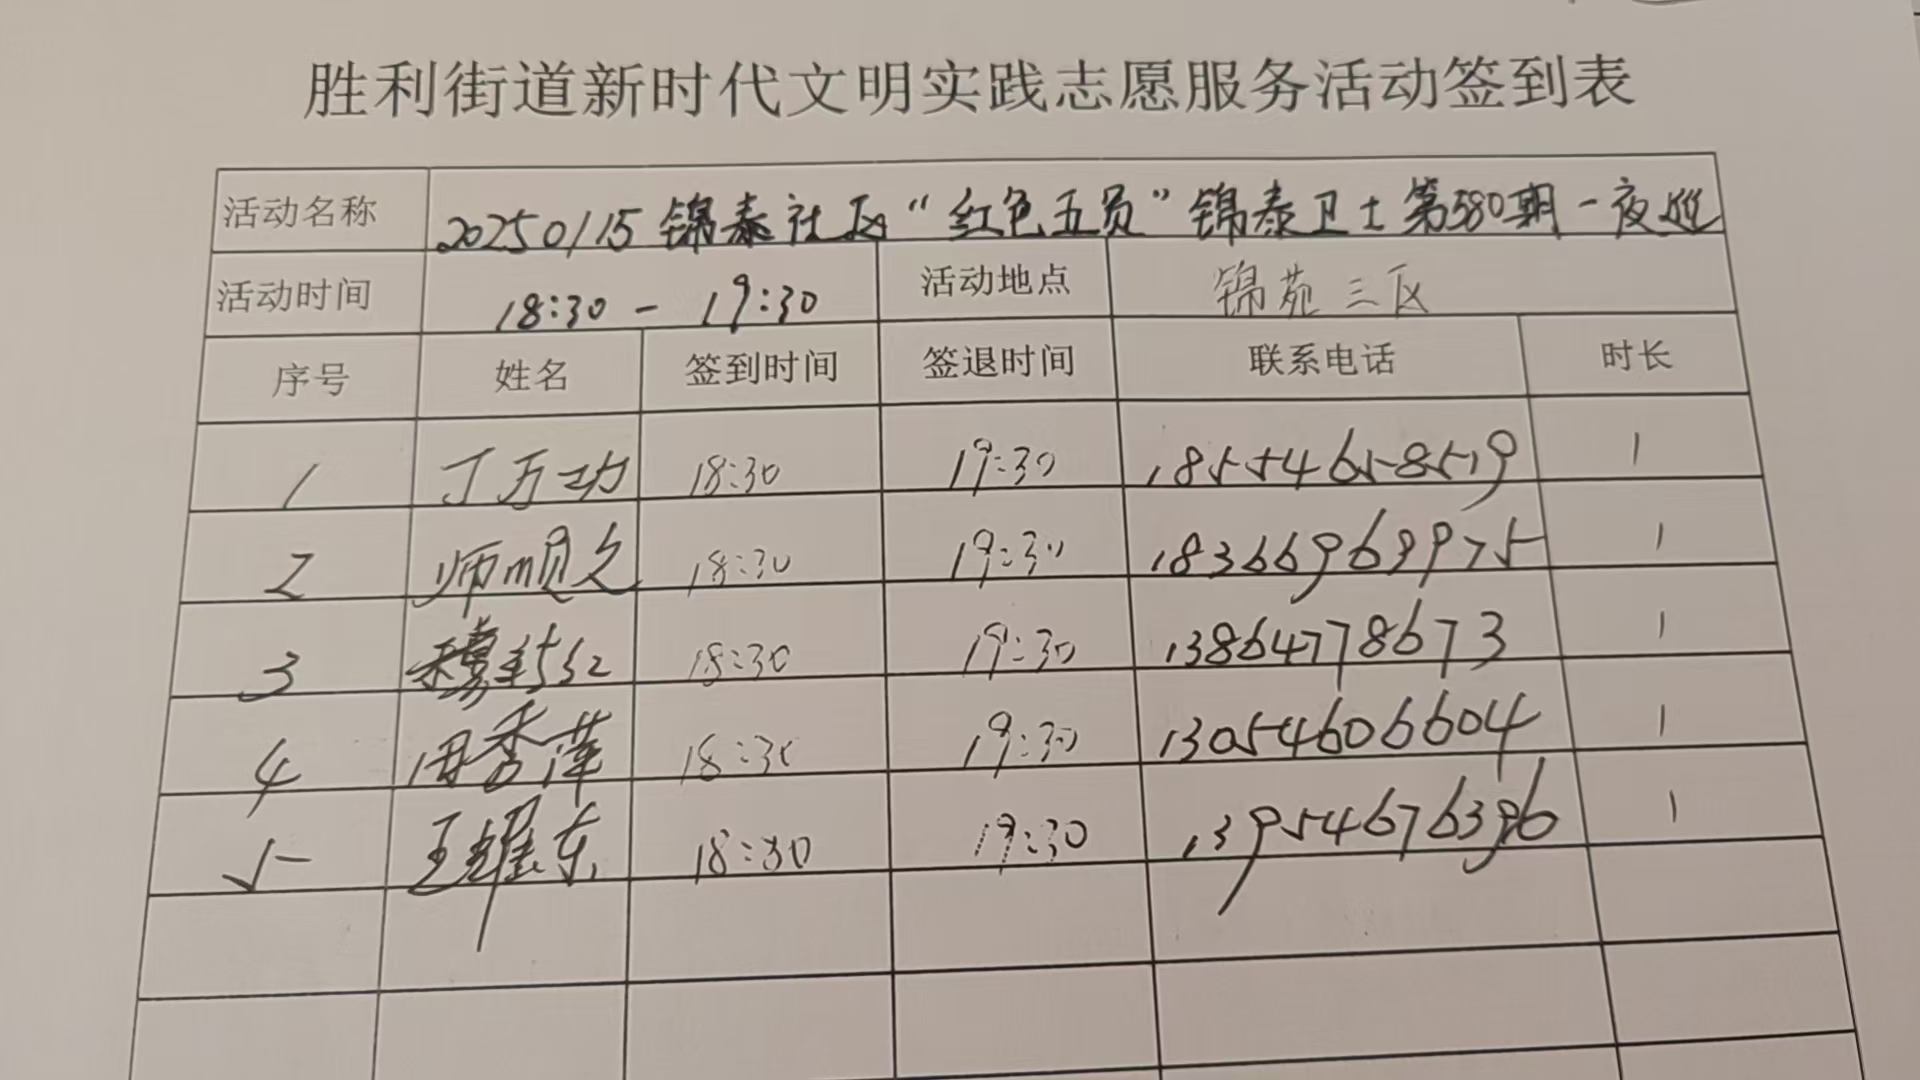 胜利街道新时代文明实践志愿服务活动签到表
活动名称 20250115 锦泰社区“红色五员”锦泰卫士第580期-夜巡
活动时间 18:30 - 19:30 活动地点 锦苑三区
序号 姓名 签到时间 签退时间 联系电话 时长
1 丁万功 18:30 19:30 18554658519 1
2 师顺久 18:30 19:30 18366969975 1
3 18:30 19:30 13864778673 1
4 周秀萍 18:30 19:30 13054606604 1
5 王耀东 18:30 19:30 13954676396 1